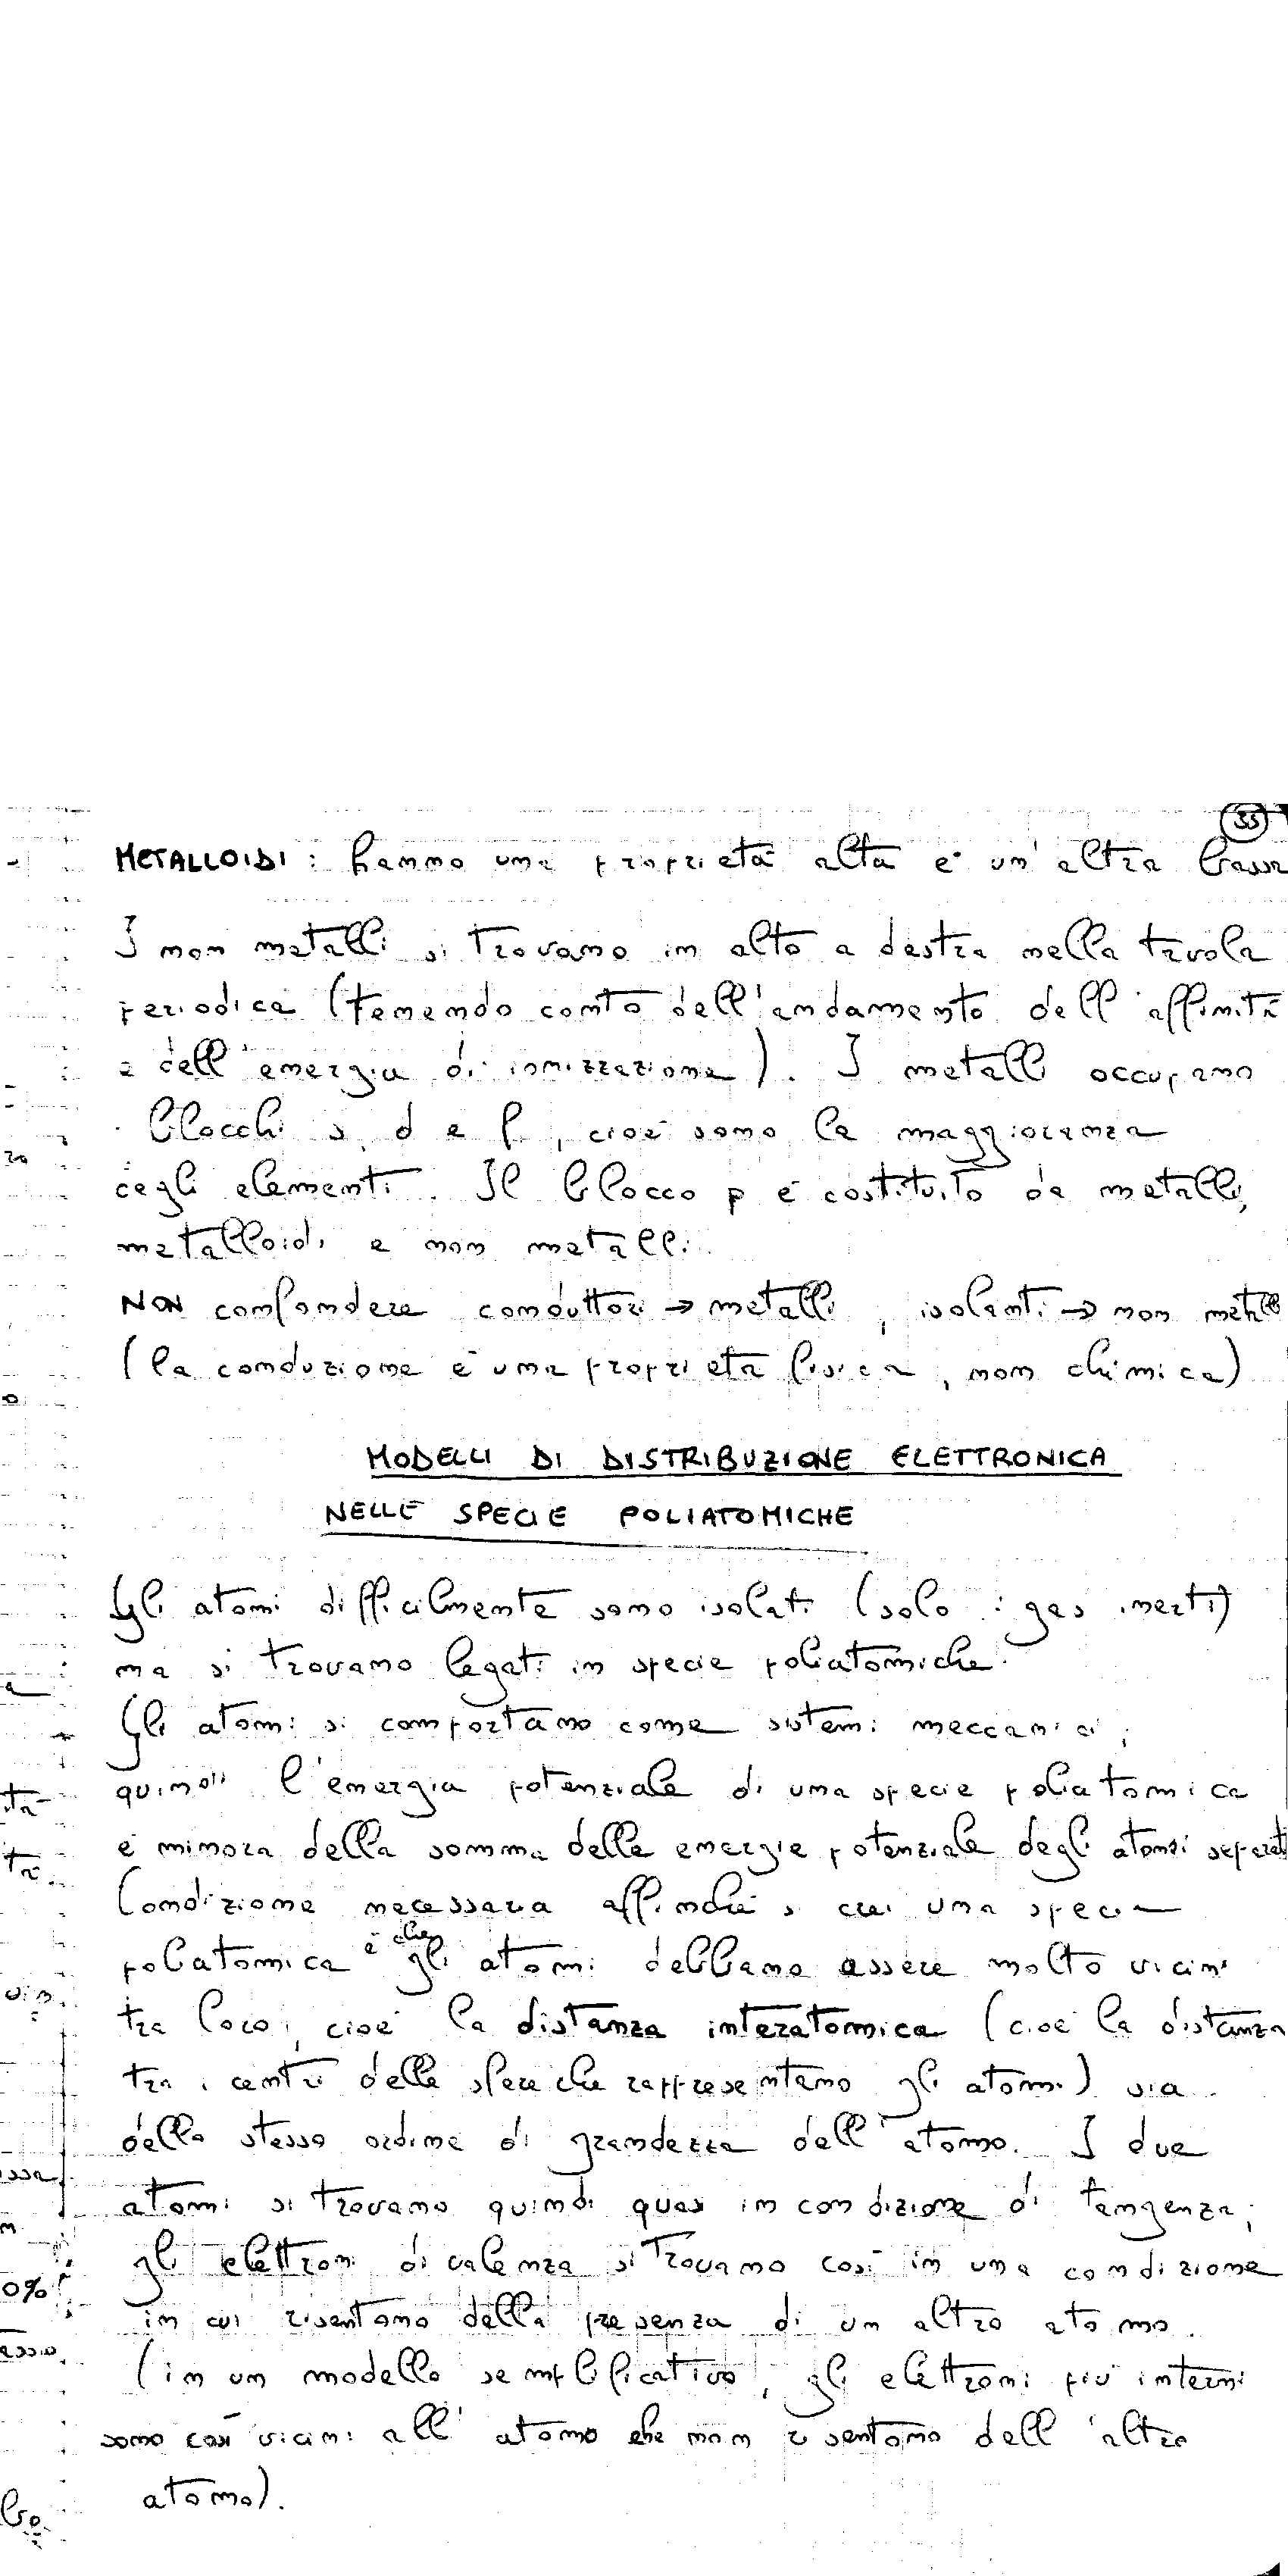 33
METALLOIDI: hanno una proprietà alta e un'altra bassa
I non metalli si trovano in alto a destra nella tavola
periodica (tenendo conto dell'andamento dell'affinità
e dell'energia di ionizzazione). I metalli occupano
i blocchi s, d e f, cioè sono la maggioranza
degli elementi. Il blocco p è costituito da metalli,
metalloidi e non metalli.
NON confondere conduttori → metalli, isolanti → non metalli
(la conduzione è una proprietà fisica, non chimica)
MODELLI DI DISTRIBUZIONE ELETTRONICA
NELLE SPECIE POLIATOMICHE
Gli atomi difficilmente sono isolati (solo i gas inerti)
ma si trovano legati in specie poliatomiche.
Gli atomi si comportano come sistemi meccanici;
quindi l'energia potenziale di una specie poliatomica
è minora della somma delle energie potenziale degli atomi separati
Condizione necessaria affinché si crei una specie
poliatomica è che gli atomi debbano essere molto vicini
tra loro, cioè la distanza interatomica (cioè la distanza
tra i centri delle sfere che rappresentano gli atomi) sia
dello stesso ordine di grandezza dell'atomo. I due
atomi si trovano quindi quasi in condizione di tangenza;
gli elettroni di valenza si trovano così in una condizione
in cui risentono della presenza di un altro atomo.
(in un modello semplificativo, gli elettroni più interni
sono così vicini all'atomo che non risentono dell'altro
atomo).